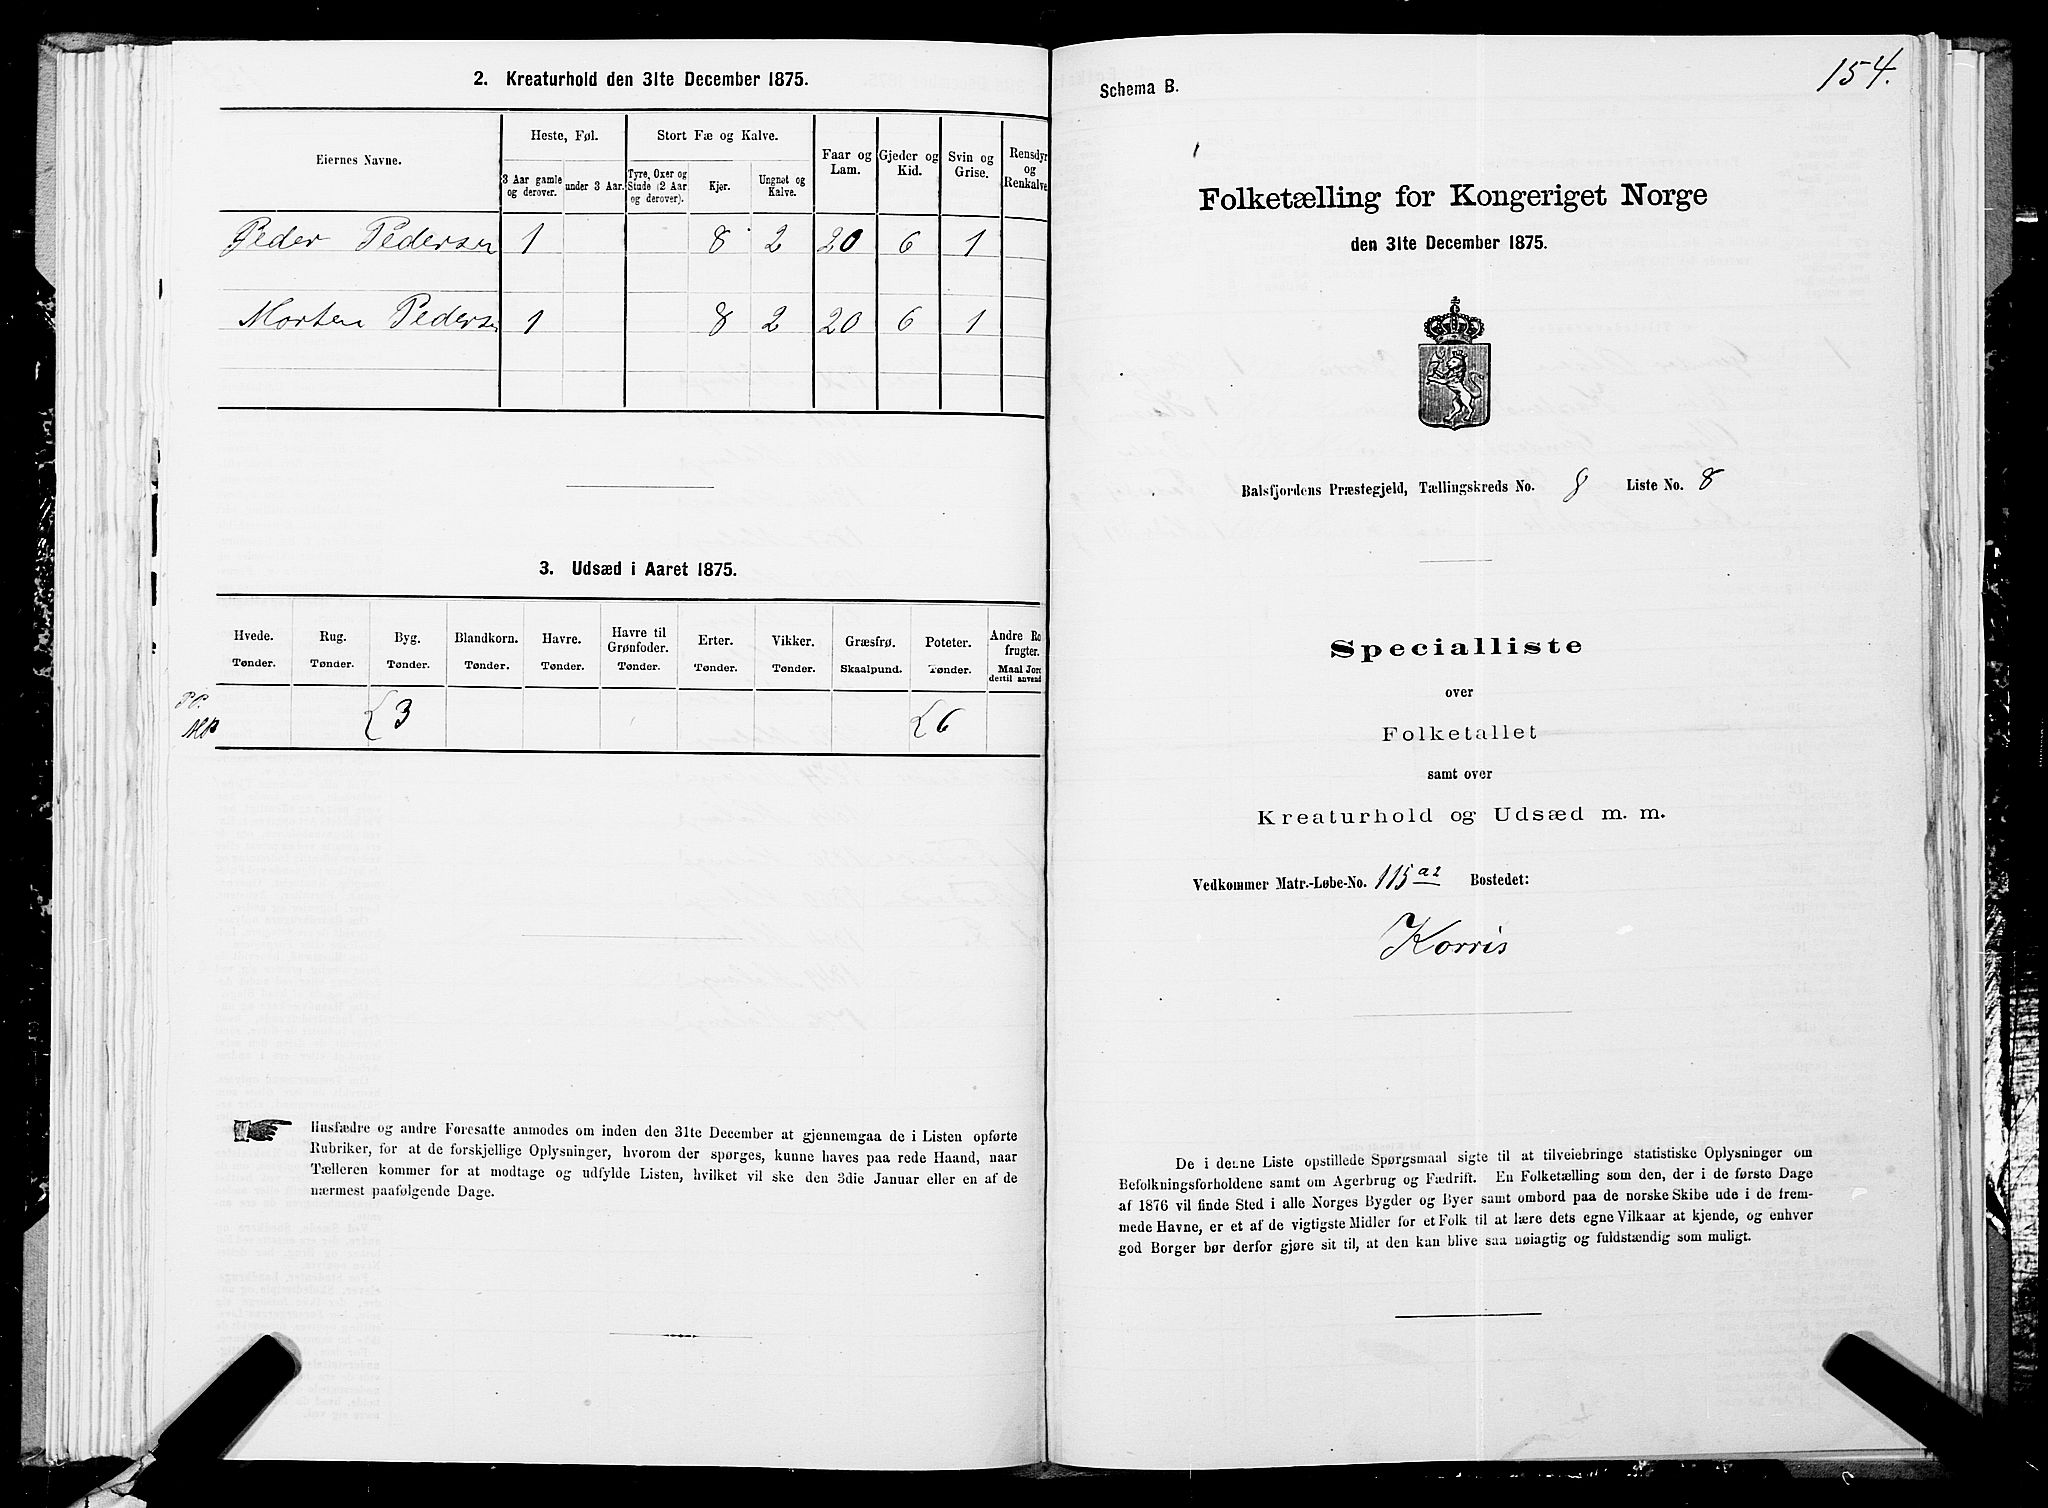 2. Kreaturhold den 31te December 1875.
Eiernes Navne.
Heste, Føl.
Stort Fæ og Kalve.
Faar og Lam.
Gjeder og Kid.
Svin og Grise.
Rensdyr og Renkalve
3 Aar gamle og derover.
under 3 Aar.
Tyre, Oxer og Stude (2 Aar og derover).
Kjør.
Ungnøt og Kalve.
Peder Pedersen 1 8 2 20 6 1
Morten Pedersen 1 8 2 20 6 1
3. Udsæd i Aaret 1875.
Hvede. Rug. Byg. Blandkorn. Havre. Havre til Grønfoder. Erter. Vikker. Græsfrø. Poteter. Andre Ro frugter.
Tønder. Tønder. Tønder. Tønder. Tønder. Tønder. Tønder. Tønder. Skaalpund. Tønder. Maal Jord dertil anvend
P P.
MP
{3 {6
Husfædre og andre Foresatte anmodes om inden den 31te December at gjennemgaa de i Listen opførte
Rubriker, for at de forskjellige Oplysninger, hvorom der spørges, kunne haves paa rede Haand, naar
Tælleren kommer for at modtage og udfylde Listen, hvilket vil ske den 3die Januar eller en af de
nærmest paafølgende Dage.
154.
Schema B.
Folketælling for Kongeriget Norge
den 31te December 1875.
Balsfjordens Præstegjeld, Tællingskreds No. 8 Liste No. 8
Specialliste
over
Folketallet
samt over
Kreaturhold og Udsæd m. m.
Vedkommer Matr.-Løbe-No. 115 a2 Bostedet:
Korris
De i denne Liste opstillede Spørgsmaal sigte til at tilveiebringe statistiske Oplysninger om
Befolkningsforholdene samt om Agerbrug og Fædrift. En Folketælling som den, der i de første Dage
af 1876 vil finde Sted i alle Norges Bygder og Byer samt ombord paa de norske Skibe ude i de frem-
mede Havne, er et af de vigtigste Midler for et Folk til at lære dets egne Vilkaar at kjende, og enhver
god Borger bør derfor gjøre sit til, at den kan blive saa nøiagtig og fuldstændig som muligt.